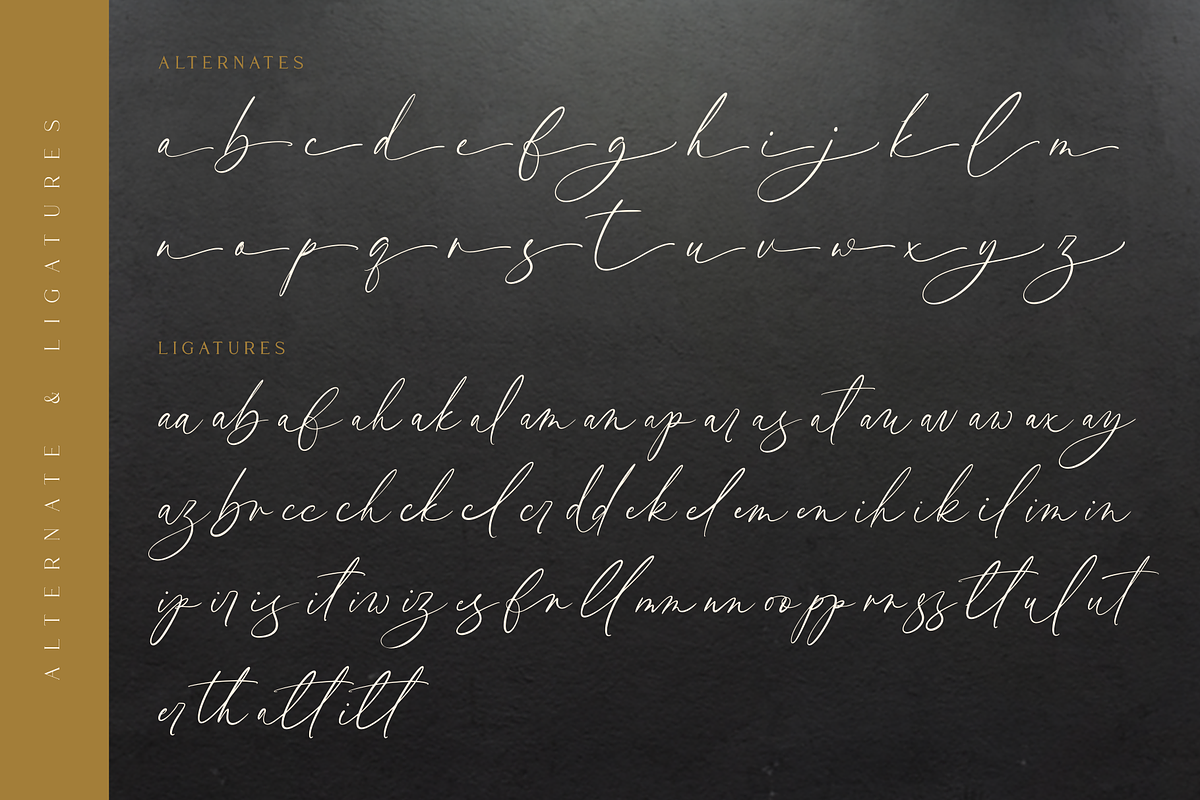 ALTERNATE & LIGATURES
ALTERNATES
a b c d e f g h i j k l m
n o p q r s t u v w x y z
LIGATURES
aa ab af ah ak al am an ap ar as at au av aw ax ay
az br cc ch ck cl cr dd ek el em en ih ik il im in
ip ir is it iw iz es fr ll mm nn oo pp rr ss tt ul ut
er th att itt